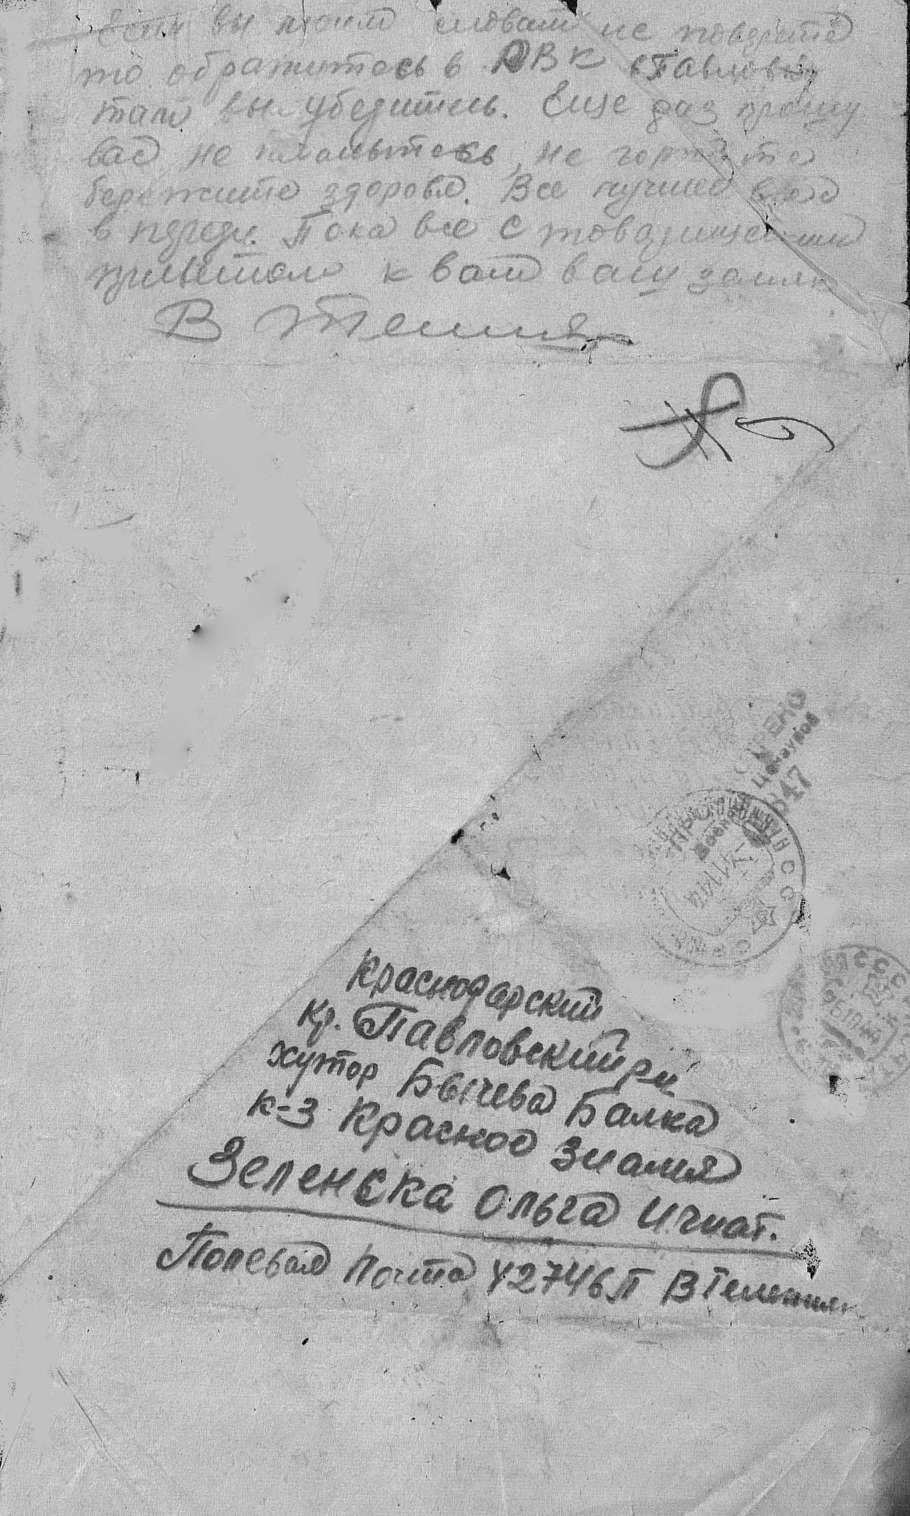 Если вы моим словам не поверите
то обратитесь в РВК в Павловку
там вы убедитесь. Еще раз прошу
вас не плачьте не горюйте
бережите здоровя. Все лучшее
в переди. Пока все с товарищеским
приветом к вам ваш земляк
В
Краснодарский
Кр. Павловский р-н
хутор Бычева Балка
к-з Красное Знамя
Зеленска Ольга Игнат.
Полевая Почта 42746П В
ПРОСМОТРЕНО
Военной Цензурой
847
СССР
СССР